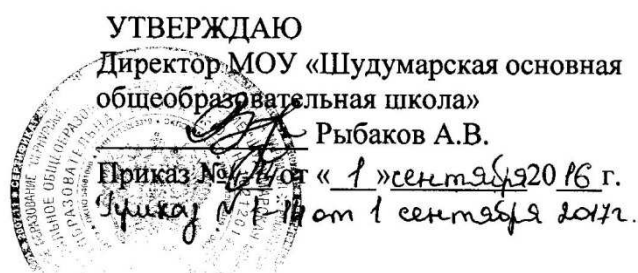 УТВЕРЖДАЮ
Директор МОУ «Шудумарская основная
общеобразовательная школа»
Рыбаков А.В.
Приказ № от « 1 »сентября2016 г.
Приказ № от 1 сентября 2017г.